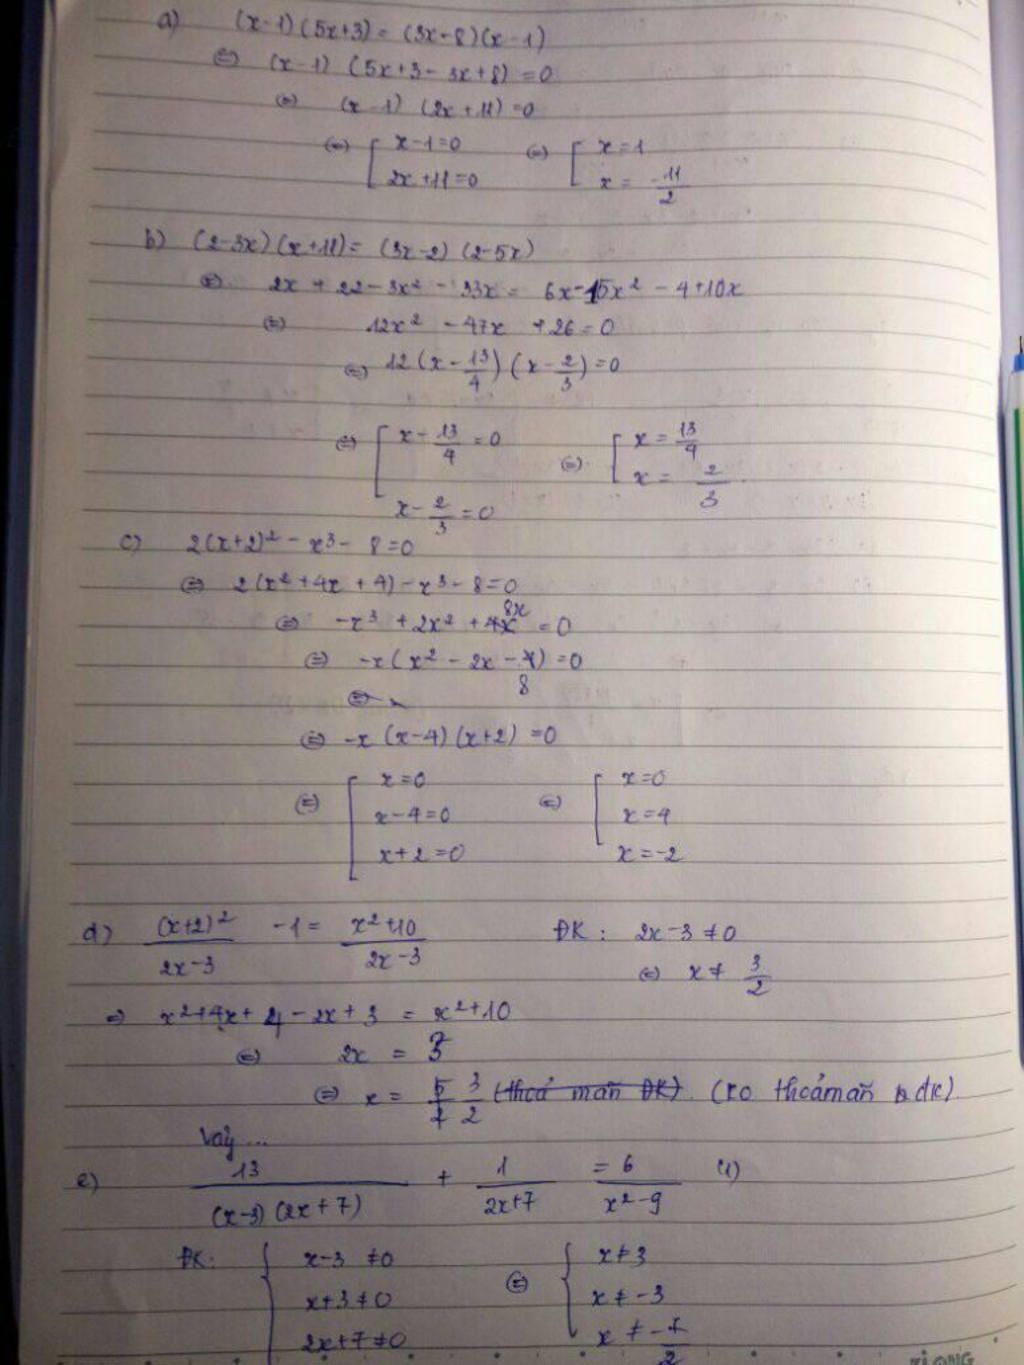 a) (x-1)(5x+3) = (3x-8)(x-1)
⇔ (x-1) (5x+3-3x+8) = 0
⇔ (x-1) (2x+11) = 0
⇔ [ x-1=0 ⇔ [ x=1
2x+11=0 x = -11/2
b) (2-3x)(x+11) = (3x-2)(2-5x)
⇔ 2x + 22-3x² - 33x = 6x-15x² - 4+10x
⇔ 12x² - 47x + 26 = 0
⇔ 12(x - 13/4)(x - 2/3) = 0
⇔ [ x - 13/4 = 0 ⇔ [ x = 13/4
x - 2/3 = 0 x = 2/3
c) 2(x+2)² - x³ - 8 = 0
⇔ 2(x²+4x+4) - x³ - 8 = 0
⇔ -x³ + 2x² + 8x = 0
⇔ -x(x² - 2x - 8) = 0
⇔ -x (x-4)(x+2) = 0
⇔ [ x=0 ⇔ [ x=0
x-4=0 x=4
x+2=0 x=-2
d) (x+2)²/2x-3 - 1 = x²+10/2x-3 ĐK: 2x-3 ≠ 0
⇔ x ≠ 3/2
⇒ x²+4x+4-2x+3 = x²+10
⇔ 2x = 3
⇔ x = 3/2 (thoả mãn ĐK). (ko thoả mãn đk).
Vậy ...
e) 13/(x-3)(2x+7) + 1/2x+7 = 6/x²-9 (1)
ĐK: { x-3 ≠ 0 ⇔ { x ≠ 3
x+3 ≠ 0 x ≠ -3
2x+7 ≠ 0 x ≠ -7/2